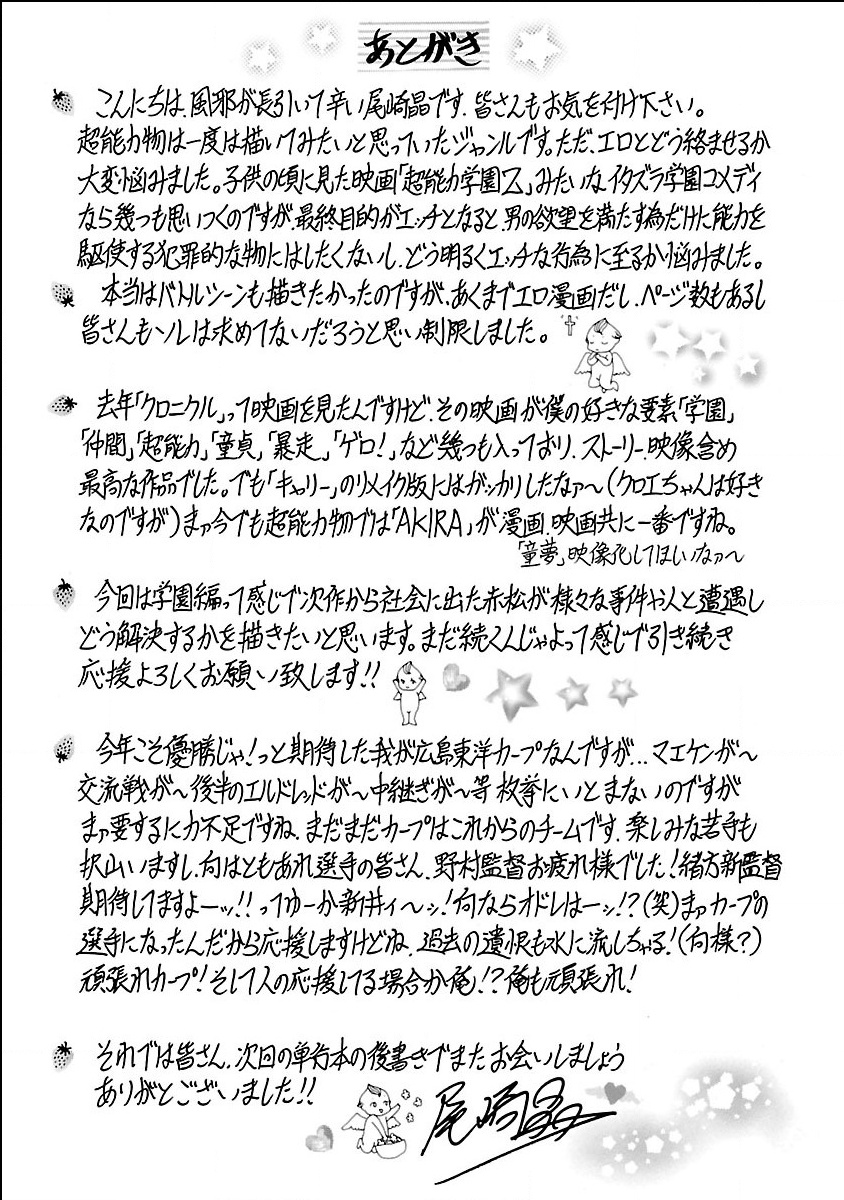 あとがき
こんにちは、風邪が長引いて辛い尾崎晶です、皆さんもお気を付け下さい。
超能力物は一度は描いてみたいと思っていたジャンルです。ただ、エロとどう絡ませるか
大変悩みました。子供の頃に見た映画「超能力学園Z」みたいなイタズラ学園コメディ
なら幾つも思いつくのですが、最終目的がエッチとなると、男の欲望を満たす為だけに能力を
駆使する犯罪的な物にはしたくないし、どう明るくエッチな行為に至るか悩みました。
本当はバトルシーンも描きたかったのですが、あくまでエロ漫画だし、ページ数もあるし
皆さんもソレは求めてないだろうと思い制限しました。
去年「クロニクル」って映画を見たんですけど、その映画が僕の好きな要素「学園」
「仲間」「超能力」「童貞」「暴走」「ゲロ!」など幾つも入っており、ストーリー、映像含め
最高な作品でした。でも「キャリー」のリメイク版にはガッカリしたなァ〜(クロエちゃんは好き
なのですが)まァ今でも超能力物では「AKIRA」が漫画、映画共に一番ですね。
「童夢」映像化してほしいなァ〜
今回は学園編って感じで次作から社会に出た赤松が様々な事件や人と遭遇し
どう解決するかを描きたいと思います。まだ続くんじゃよって感じで引き続き
応援よろしくお願い致します!!
今年こそ優勝じゃ!っと期待した我が広島東洋カープなんですが...マエケンが〜
交流戦が〜後半のエルドレッドが〜中継ぎが〜等枚挙にいとまないのですが
まァ要するに力不足ですね、まだまだカープはこれからのチームです、楽しみな若手も
沢山いますし、何はともあれ選手の皆さん、野村監督お疲れ様でした!緒方新監督
期待してますよーッ!!ってゆーか新井ィ〜ッ!何ならオドレはーッ!?(笑)まァカープの
選手になったんだから応援しますけどね、過去の遺恨も水に流しちゃる!(何様?)
頑張れカープ!そして人の応援してる場合か俺!?俺も頑張れ!
それでは皆さん、次回の単行本の後書きでまたお会いしましょう
ありがとございました!!
尾崎晶